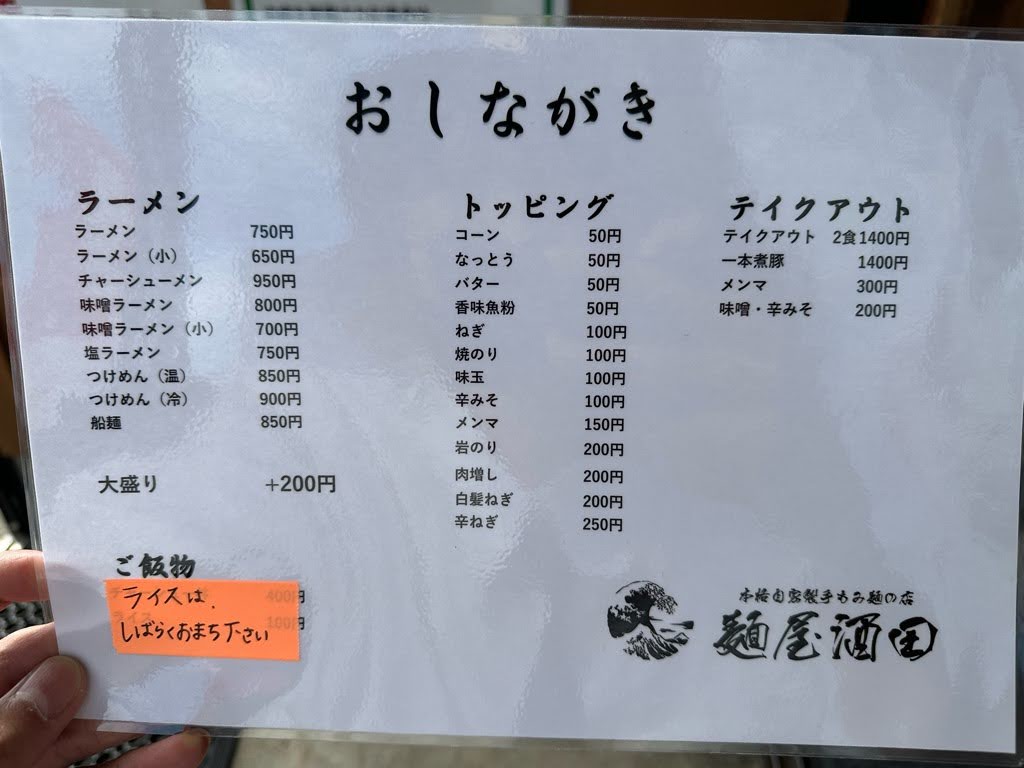 おしながき
ラーメン
ラーメン 750円
ラーメン（小） 650円
チャーシューメン 950円
味噌ラーメン 800円
味噌ラーメン（小） 700円
塩ラーメン 750円
つけめん（温） 850円
つけめん（冷） 900円
船麺 850円
大盛り +200円
ご飯物
400円
ライス 100円
ライスは、
しばらくおまち下さい
トッピング
コーン 50円
なっとう 50円
バター 50円
香味魚粉 50円
ねぎ 100円
焼のり 100円
味玉 100円
辛みそ 100円
メンマ 150円
岩のり 200円
肉増し 200円
白髪ねぎ 200円
辛ねぎ 250円
テイクアウト
テイクアウト 2食1400円
一本煮豚 1400円
メンマ 300円
味噌・辛みそ 200円
本格自家製手もみ麺の店
麺屋酒田